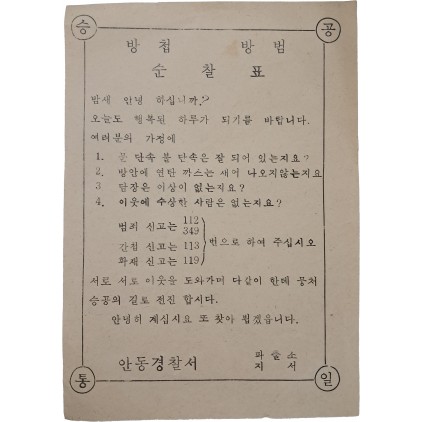 승 공
방첩 방범
순찰표
밤새 안녕 하십니까?
오늘도 행복된 하루가 되기를 바랍니다.
여러분의 가정에
1. 문 단속 불 단속은 잘 되어 있는지요?
2. 방안에 연탄 까스는 새어 나오지않는지요
3 담장은 이상이 없는지요?
4. 이웃에 수상한 사람은 없는지요?
범죄 신고는 112 349
간첩 신고는 113 번으로 하여 주십시오
화재 신고는 119
서로 서로 이웃을 도와가며 다같이 한데 뭉쳐
승공의 길로 전진 합시다.
안녕히 계십시요 또 찾아 뵙겠읍니다.
안동경찰서 파출소 지서
통 일